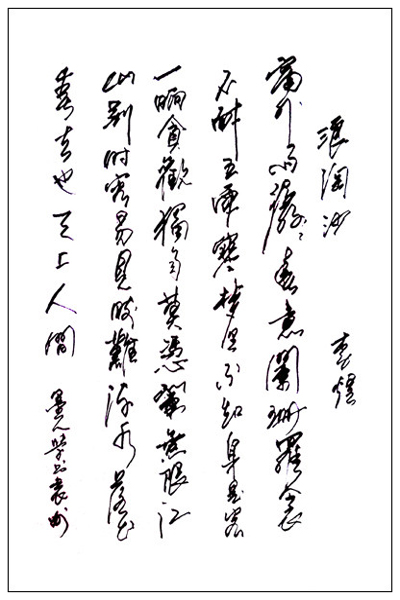 浪淘沙 李煜
窗外雨潺潺春意闌珊羅衾
不耐五更寒夢里不知身是客
一晌貪歡獨自莫憑闌無限江
山别时容易見時難流水落花
春去也天上人間